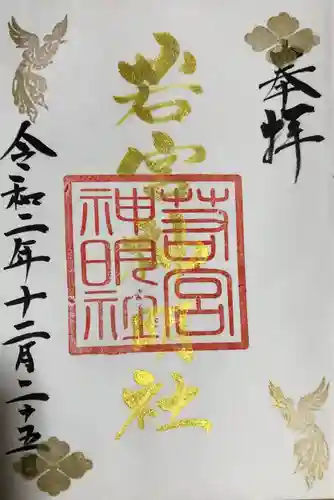 奉拝
若宮神明社
若宮
神明社
令和二年十二月二十五日